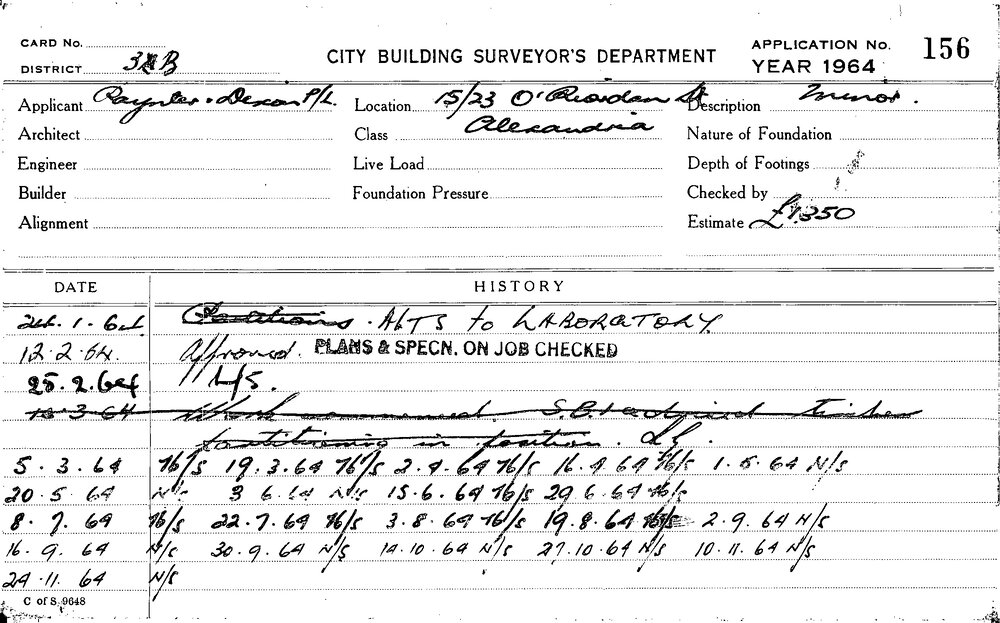 CARD No.
DISTRICT B
CITY BUILDING SURVEYOR'S DEPARTMENT
APPLICATION No. 156
YEAR 1964
Applicant Raynter - Dexon P/L. Location 15/23 O'Riordan St Description Minor.
Architect Class Alexandria Nature of Foundation
Engineer Live Load Depth of Footings
Builder Foundation Pressure Checked by
Alignment Estimate £1350
DATE HISTORY
24.1.64 Partitions. ALTS to LABORATORY
12.2.64. Approved. PLANS & SPECN. ON JOB CHECKED
25.2.64
3 64 Work commenced. timber
partitioning in position.
5.3.64 N/S 19.3.64 N/S 2.4.64 N/S 16.4.64 N/S 1.5.64 N/S
20.5.64 N/S 3 6.64 N/S 15.6.64 N/S 29.6.64 N/S
8.7.64 N/S 22.7.64 N/S 3.8.64 N/S 19.8.64 N/S 2.9.64 N/S
16.9.64 N/S 30.9.64 N/S 14.10.64 N/S 27.10.64 N/S 10.11.64 N/S
24.11.64 N/S
C of S. 9648